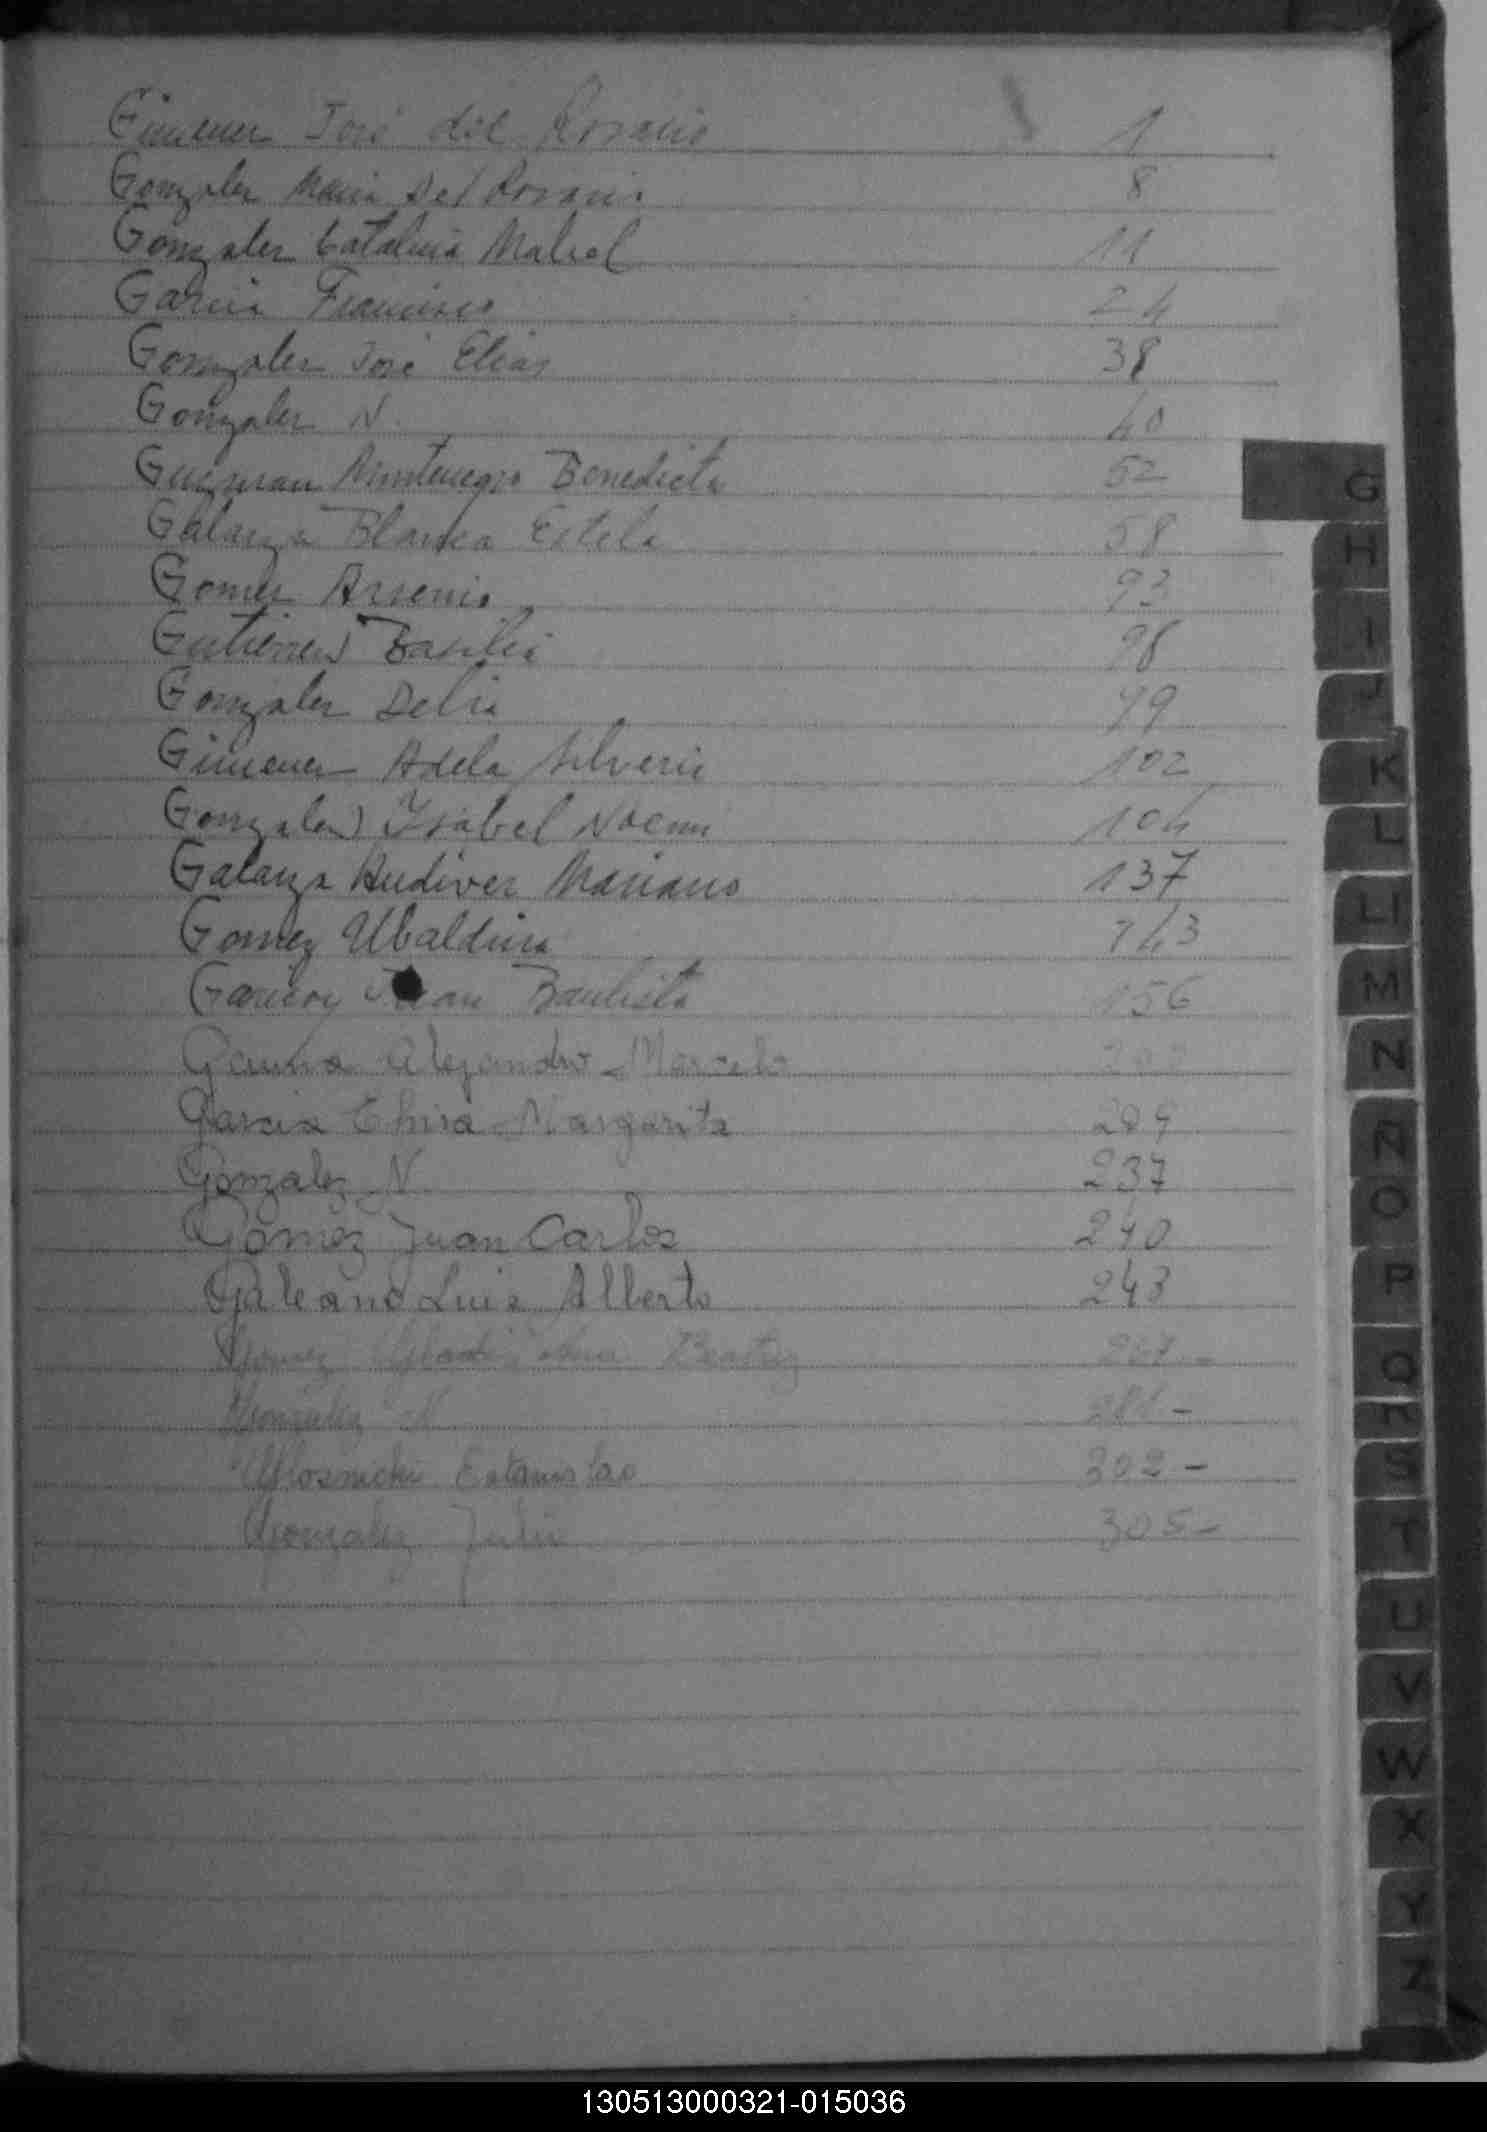 Gimenez José del Rosario 1
Gonzalez Maria Del Rosario 8
Gonzalez Catalina Mabel 11
Garcia Francisco 24
Gonzalez José Elias 38
Gonzalez N. 40
Guzman Montenegro Benedicta 52
Galarza Blanca Estela 58
Gomez Arsenio 93
Gutierrez Basilia 98
Gonzalez Delia 99
Gimenez Adela Silveria 102
Gonzalez Ysabel Noemi 104
Galarza Audiver Mariano 137
Gomez Ubaldina 143
Juan Bautista 156
Gauna Alejandro - Marcelo
Garcia Elvira Margarita 209
Gonzalez N. 237
Gomez Juan Carlos 240
Galeano Luis Alberto 243
Gomez Ana Beatriz
Gonzalez N
Estanislao 302-
Gonzalez Julio 305-
G
H
I
J
K
L
Ll
M
N
Ñ
O
P
Q
R
S
T
U
V
W
X
Y
Z
130513000321-015036